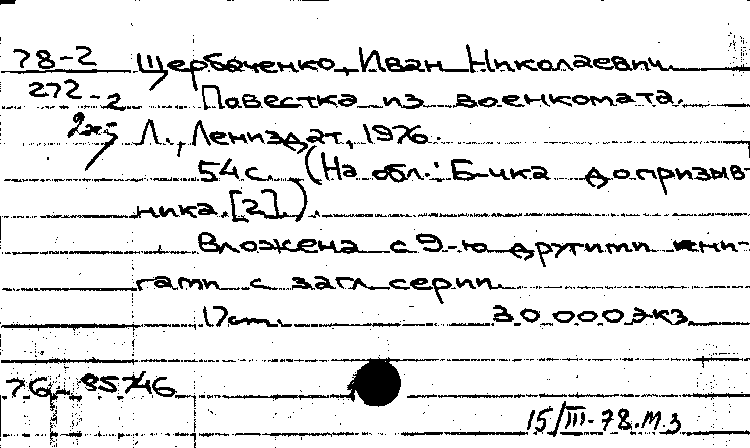 78-2 Щербаченко, Иван Николаевич.
272-2 Повестка из военкомата.
2экз Л., Лениздат, 1976.
54 с. (На обл.: Б-чка допризыв-
ника. [2].).
Вложена с 9-ю другими кни-
гами с загл. серии.
17 см. 30 000 экз
76-85746
15/III-78.М.З